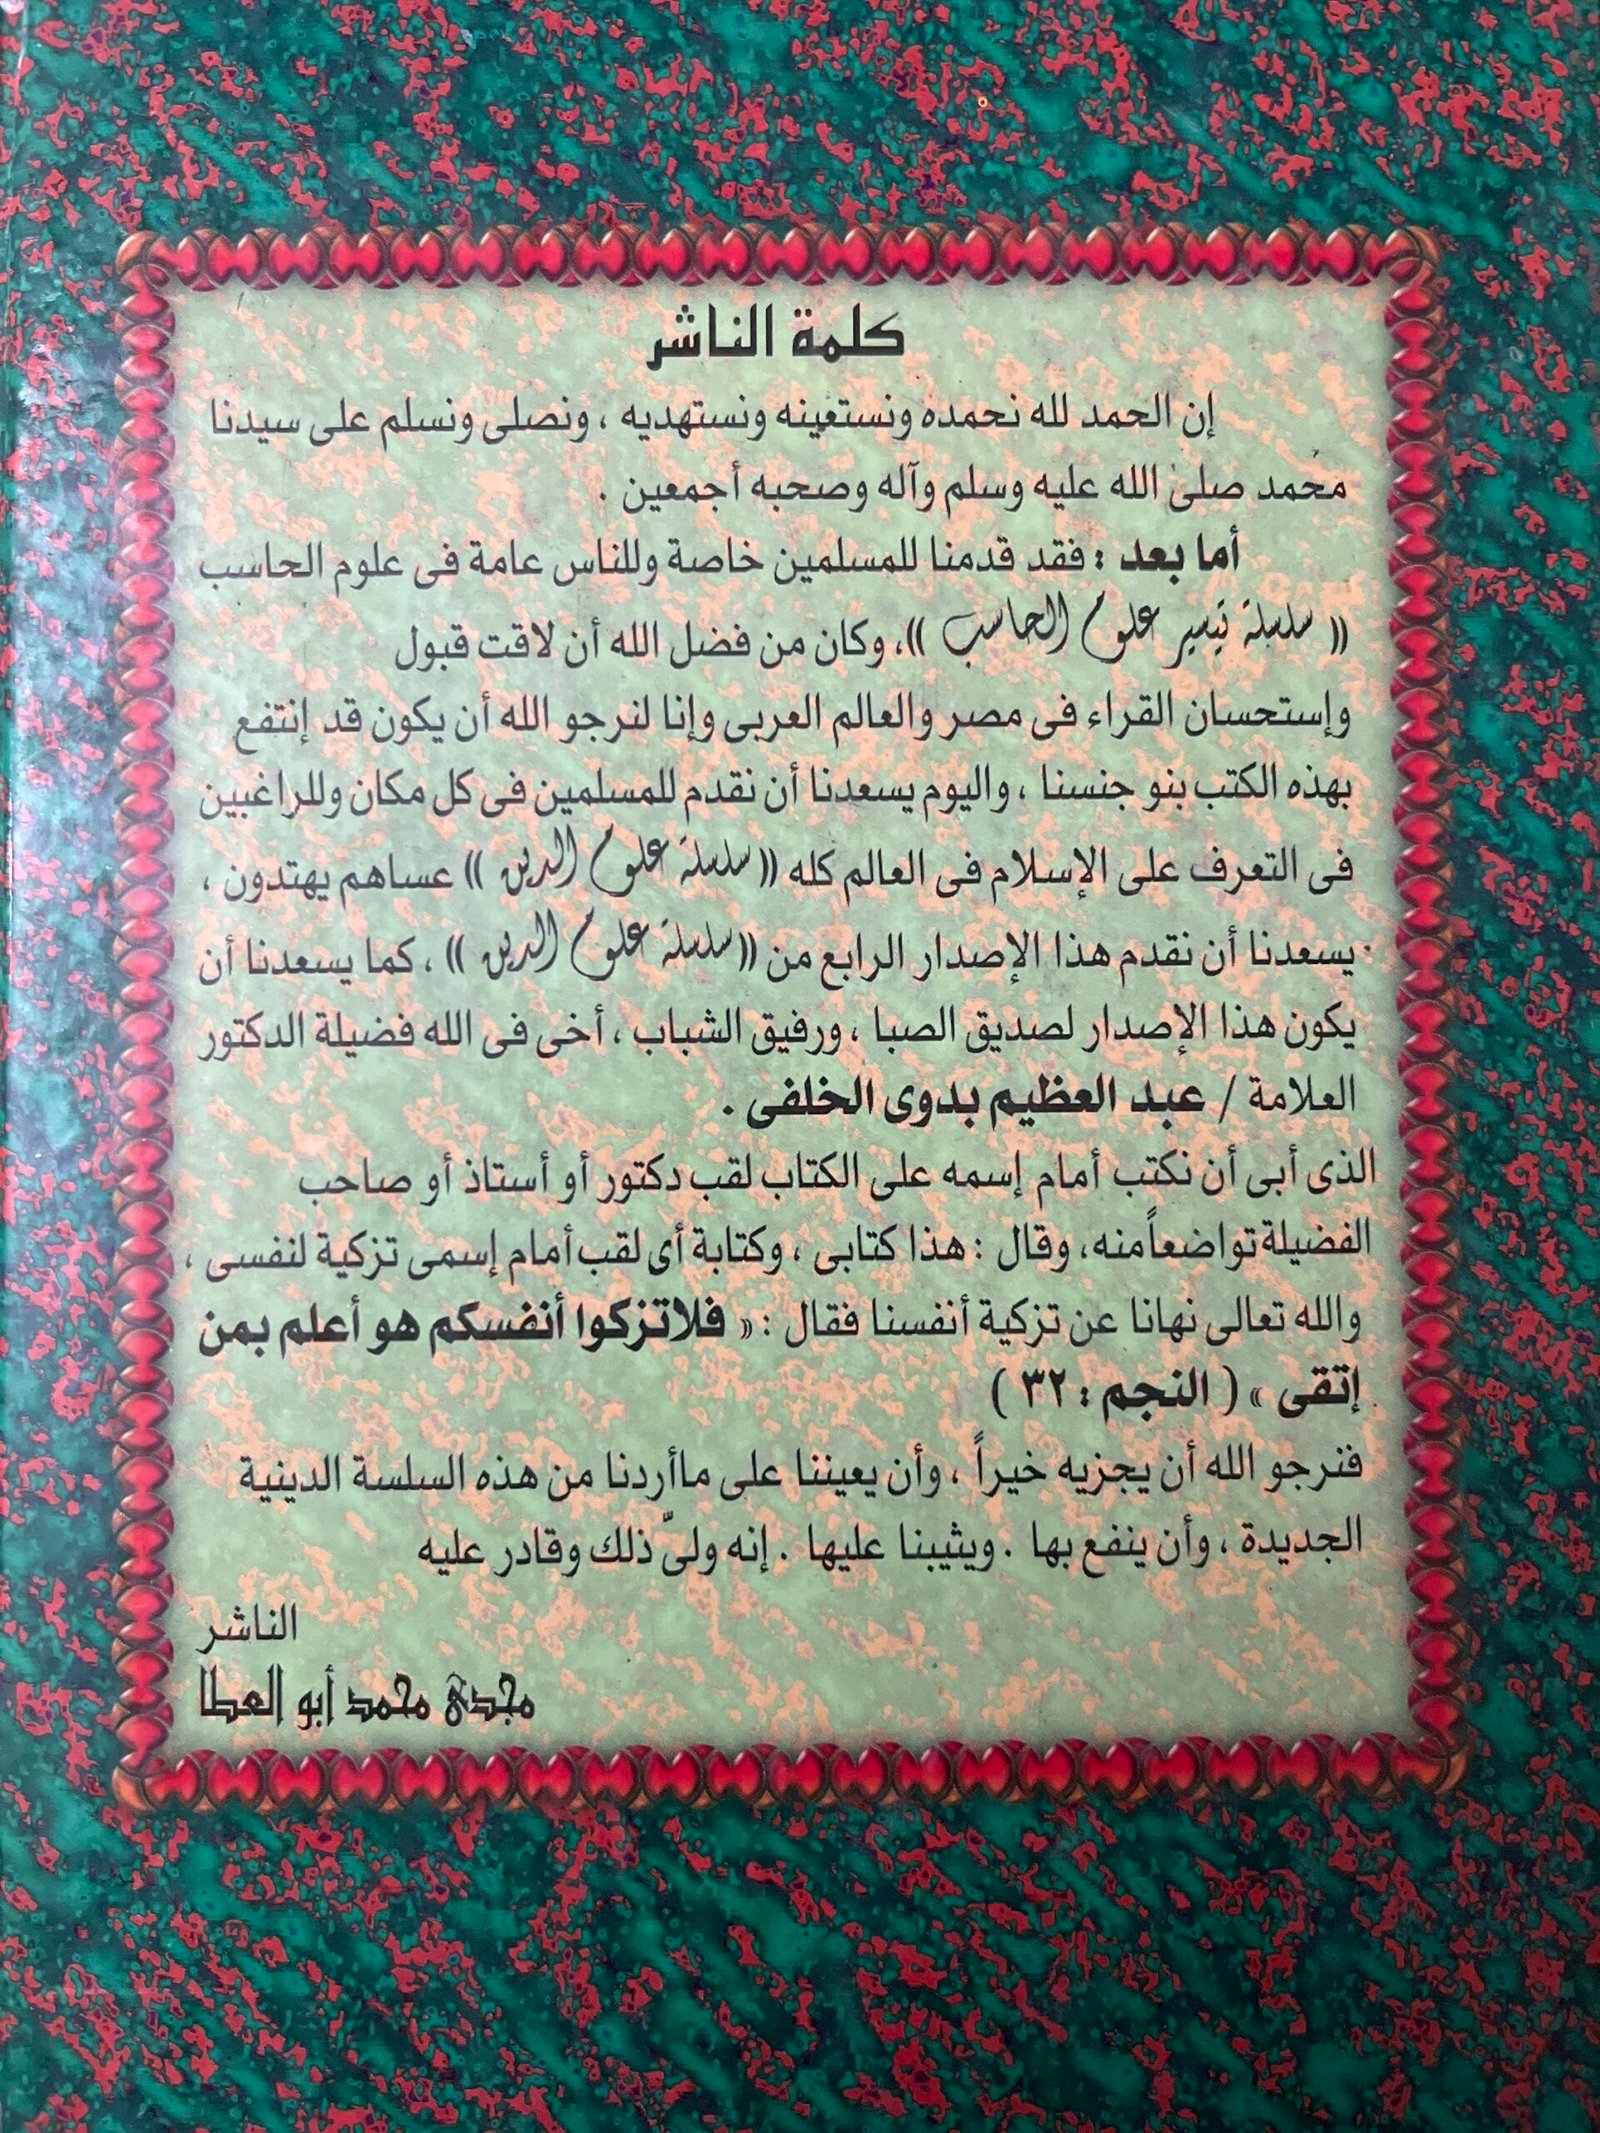 كلمة الناشر
إن الحمد لله نحمده ونستعينه ونستهديه ، ونصلى ونسلم على سيدنا
محمد صلى الله عليه وسلم وآله وصحبه أجمعين .
أما بعد : فقد قدمنا للمسلمين خاصة وللناس عامة فى علوم الحاسب
(( سلسلة تيسير علوم الحاسب )) ، وكان من فضل الله أن لاقت قبول
وإستحسان القراء فى مصر والعالم العربى وإنا لنرجو الله أن يكون قد إنتفع
بهذه الكتب بنو جنسنا ، واليوم يسعدنا أن نقدم للمسلمين فى كل مكان وللراغبين
فى التعرف على الإسلام فى العالم كله (( سلسلة علوم الدين )) عساهم يهتدون ،
يسعدنا أن نقدم هذا الإصدار الرابع من (( سلسلة علوم الدين )) ، كما يسعدنا أن
يكون هذا الإصدار لصديق الصبا ، ورفيق الشباب ، أخى فى الله فضيلة الدكتور
العلامة / عبد العظيم بدوى الخلفى .
الذى أبى أن نكتب أمام إسمه على الكتاب لقب دكتور أو أستاذ أو صاحب
الفضيلة تواضعاً منه ، وقال : هذا كتابى ، وكتابة أى لقب أمام إسمى تزكية لنفسى ،
والله تعالى نهانا عن تزكية أنفسنا فقال : « فلا تزكوا أنفسكم هو أعلم بمن
إتقى » ( النجم : ٣٢ )
فنرجو الله أن يجزيه خيراً ، وأن يعيننا على ماأردنا من هذه السلسة الدينية
الجديدة ، وأن ينفع بها . ويثيبنا عليها . إنه ولىّ ذلك وقادر عليه
الناشر
مجدى محمد أبو العطا